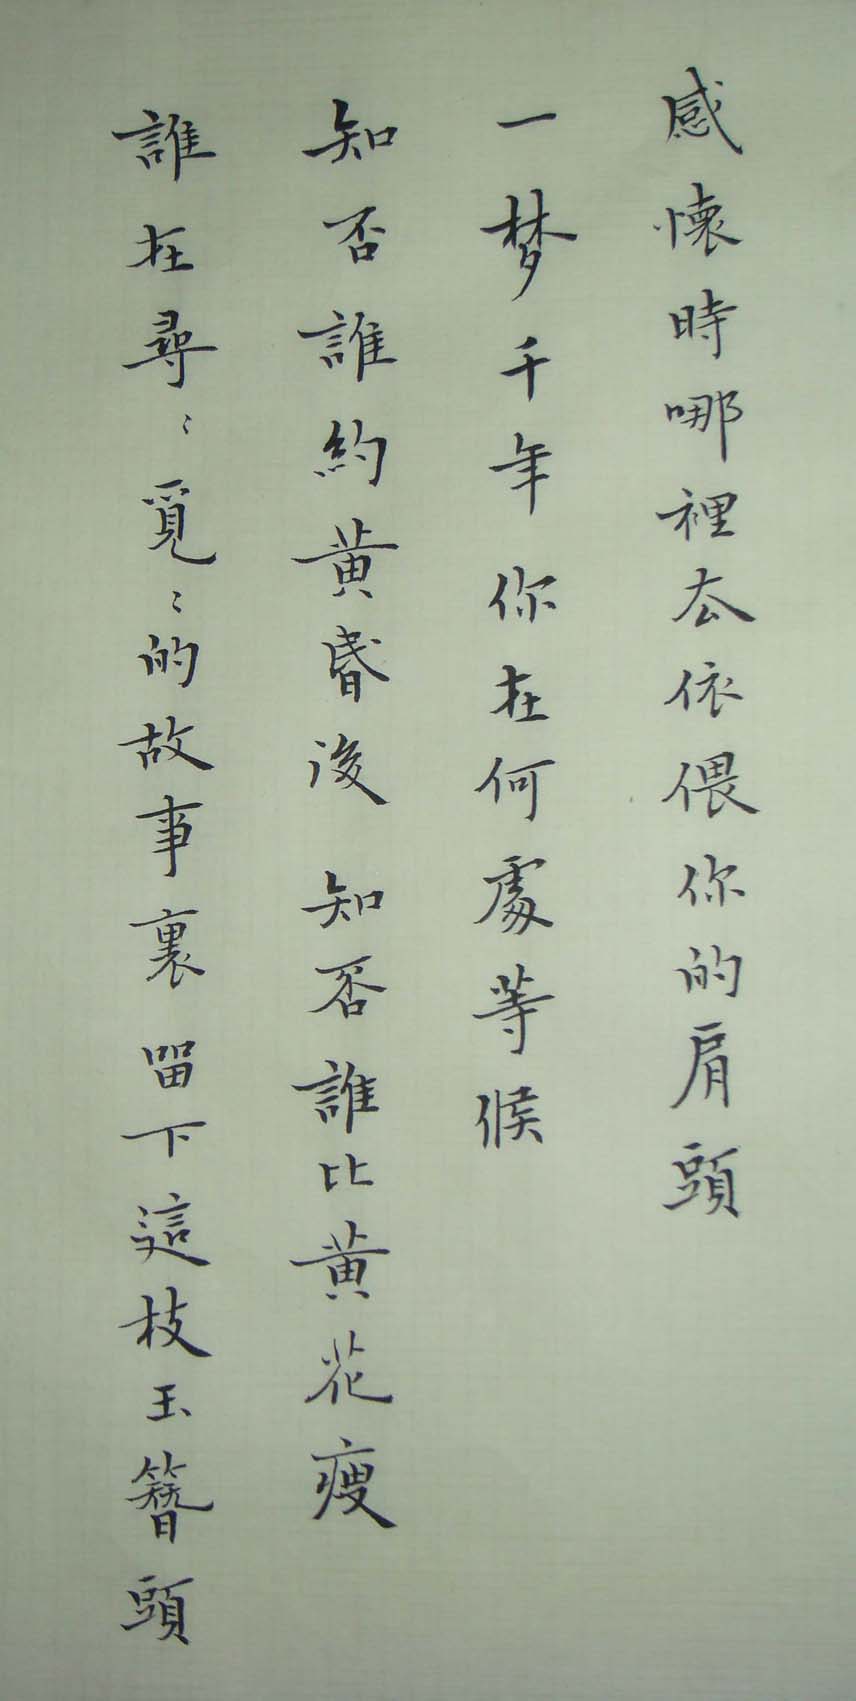 感懷時哪裡去依偎你的肩頭
一梦千年你在何處等候
知否誰約黄昬後 知否誰比黄花瘦
誰在尋〻覓〻的故事裏留下這枝玉簪頭